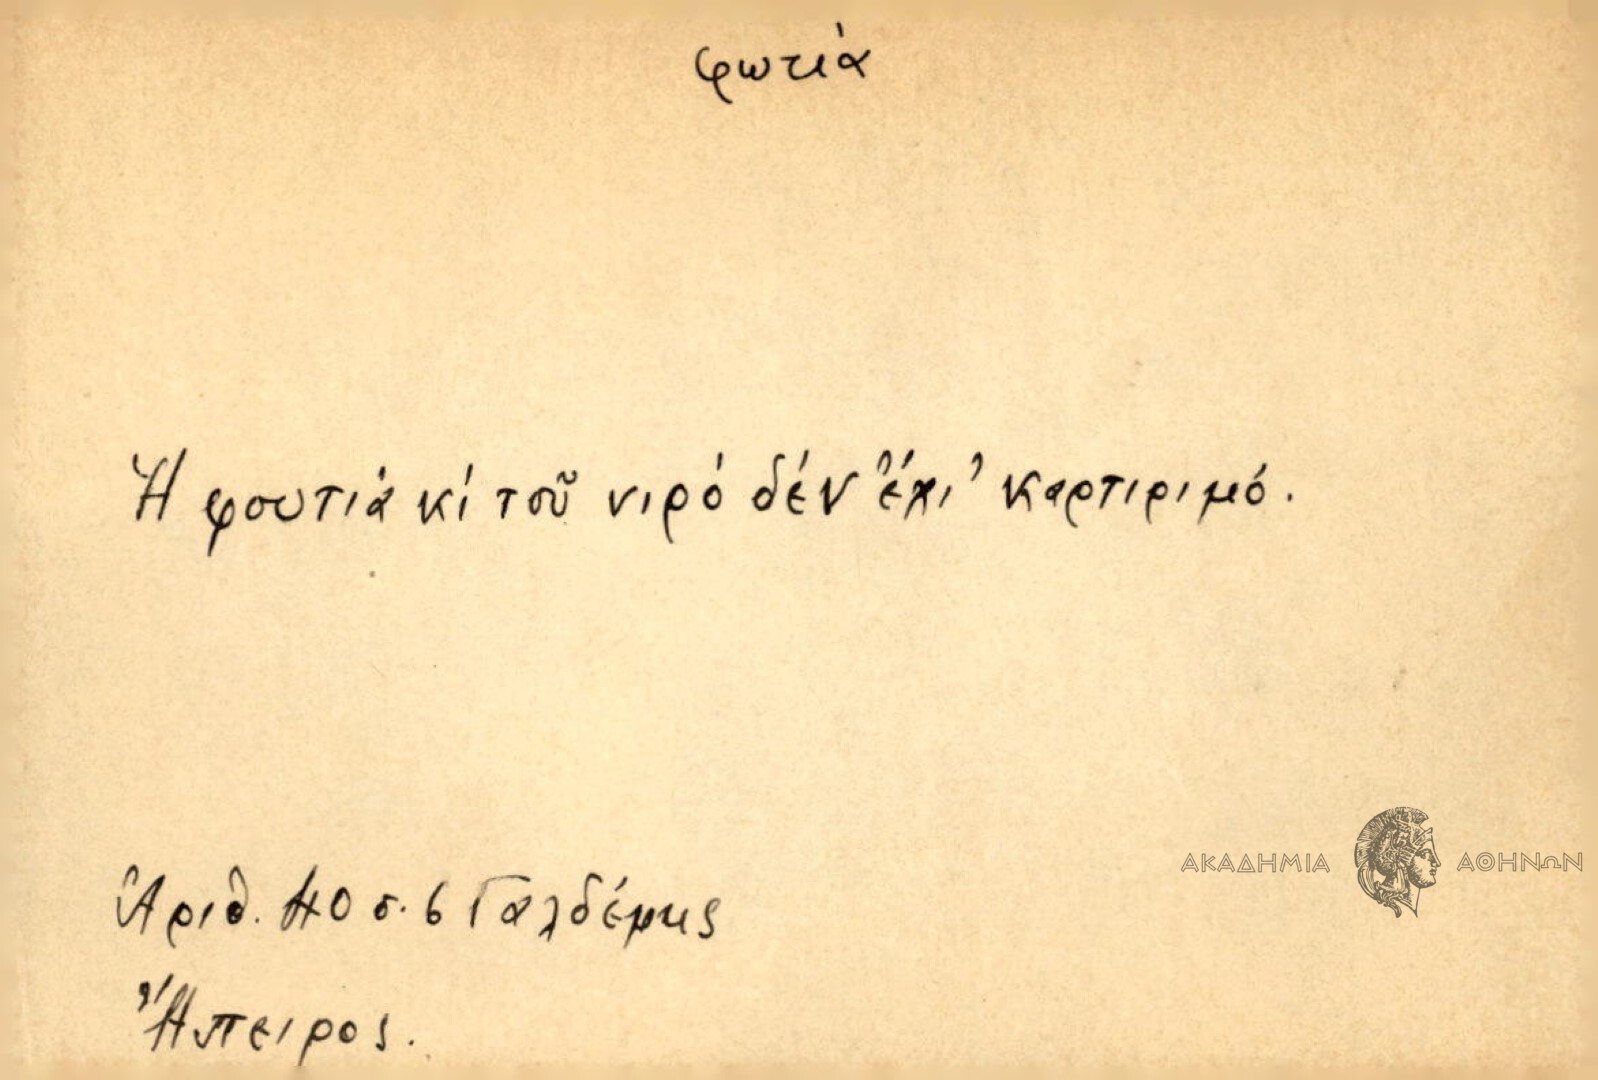 φωτιά
Ἡ φουτιά κί τοῦ νιρό δέν ἔχι' καρτιριμό.
ΑΚΑΔΗΜΙΑ ΑΘΗΝΩΝ
Ἀριθ. σ. 6 Γαλδέμης
Ἤπειρος.